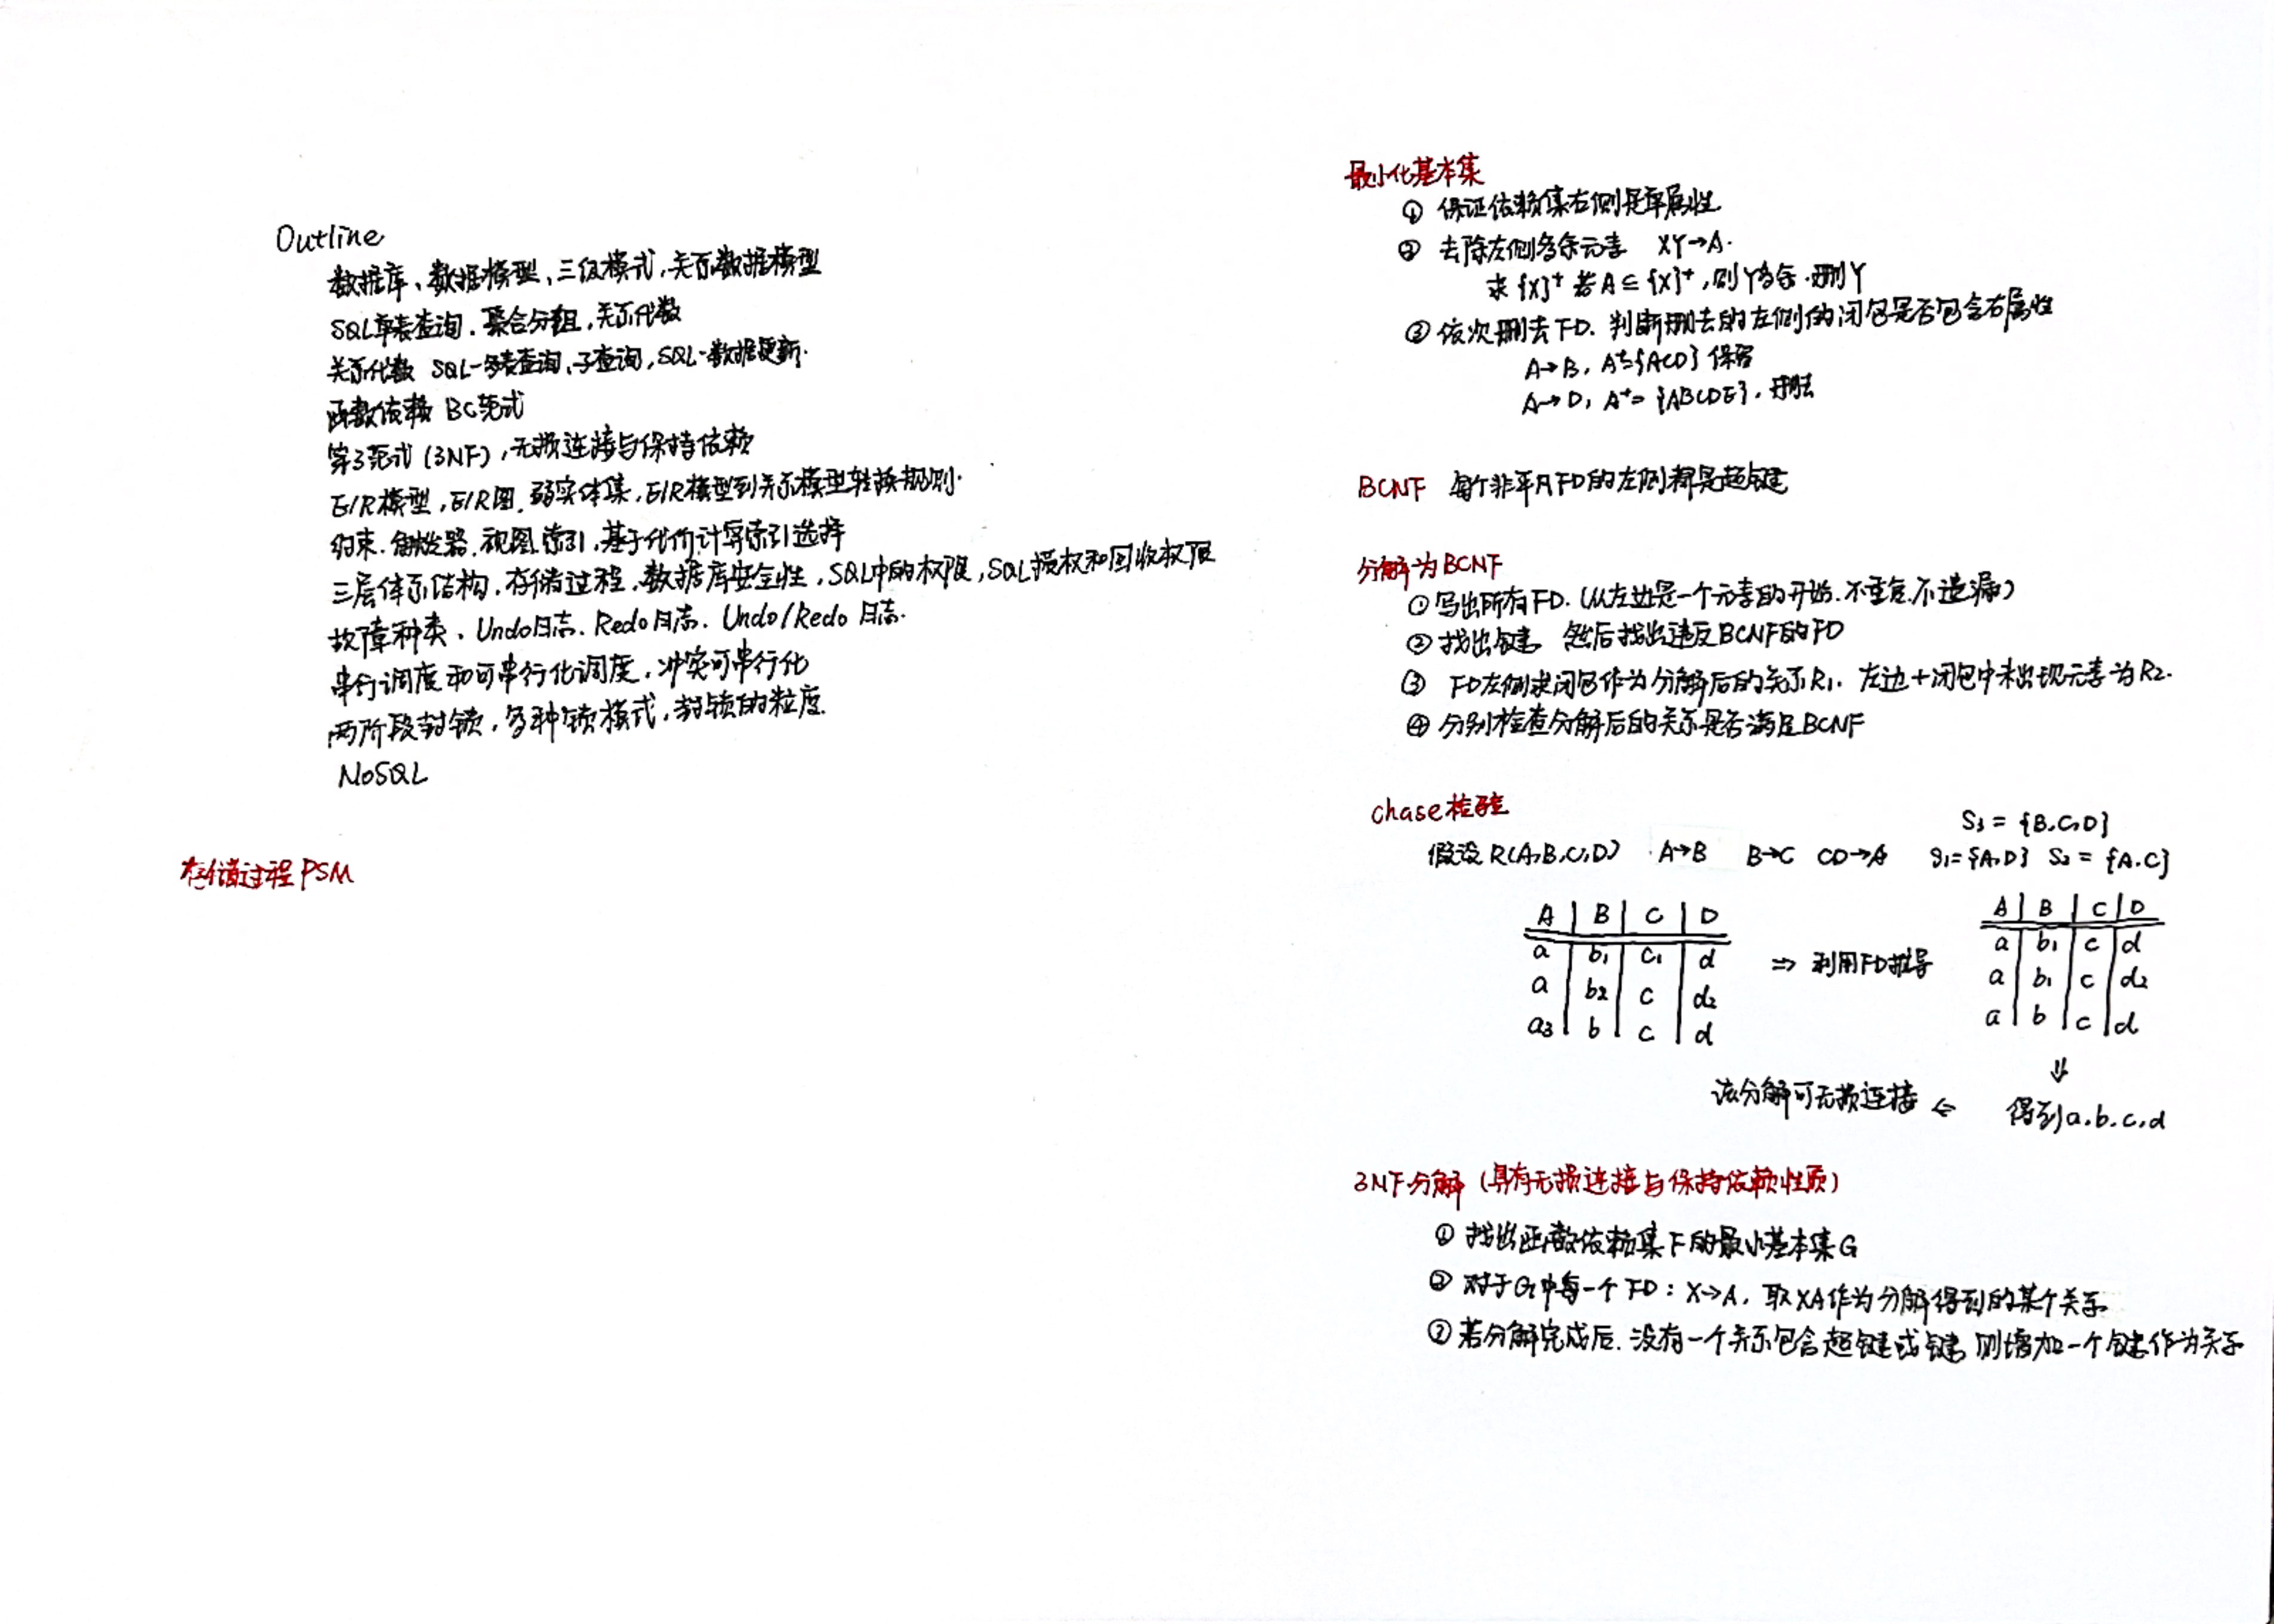 Outline
数据库、数据模型、三级模式,关系数据模型
SQL单表查询.聚合分组,关系代数
关系代数 SQL-多表查询,子查询,SQL-数据更新.
函数依赖 BC范式
第3范式(3NF),无损连接与保持依赖
E/R模型,E/R图.弱实体集,E/R模型到关系模型转换规则.
约束.触发器.视图.索引,基于代价计算索引选择
三层体系结构,存储过程,数据库安全性,SQL中的权限,SQL授权和回收权限
故障种类、Undo日志.Redo日志.Undo/Redo日志.
串行调度和可串行化调度,冲突可串行化
两阶段封锁,多种锁模式,封锁的粒度.
NoSQL
存储过程PSM
最小化基本集
① 保证依赖集右侧是单属性
② 去除左侧多余元素 XY→A.
求{X}⁺ 若A⊆{X}⁺,则Y多余.删Y
③ 依次删去FD.判断删去的左侧的闭包是否包含右属性
A→B, A⁺={ACD} 保留
A→D, A⁺={ABCDE}.删去
BCNF 每个非平凡FD的左侧都是超键
分解为BCNF
①写出所有FD.(从左边是一个元素的开始.不重复.不遗漏)
②找出键 然后找出违反BCNF的FD
③ FD左侧求闭包作为分解后的关系R₁.左边+闭包中未出现元素为R2.
④ 分别检查分解后的关系是否满足BCNF
chase检验
S₃={B.C.D}
假设R(A,B,C,D) A→B B→C CD→A S₁={A,D} S₂={A.C}
A B C D
a b₁ c₁ d
a b₂ c d₂
a₃ b c d
⇒ 利用FD推导
A B C D
a b₁ c d
a b₁ c d₂
a b c d
⇓
得到a.b.c.d
该分解可无损连接 ⇐
3NF分解(具有无损连接与保持依赖性质)
① 找出函数依赖集F的最小基本集G
② 对于G中每一个FD:X→A.取XA作为分解得到的某个关系
③ 若分解完成后.没有一个关系包含超键或键 则增加一个键作为关系